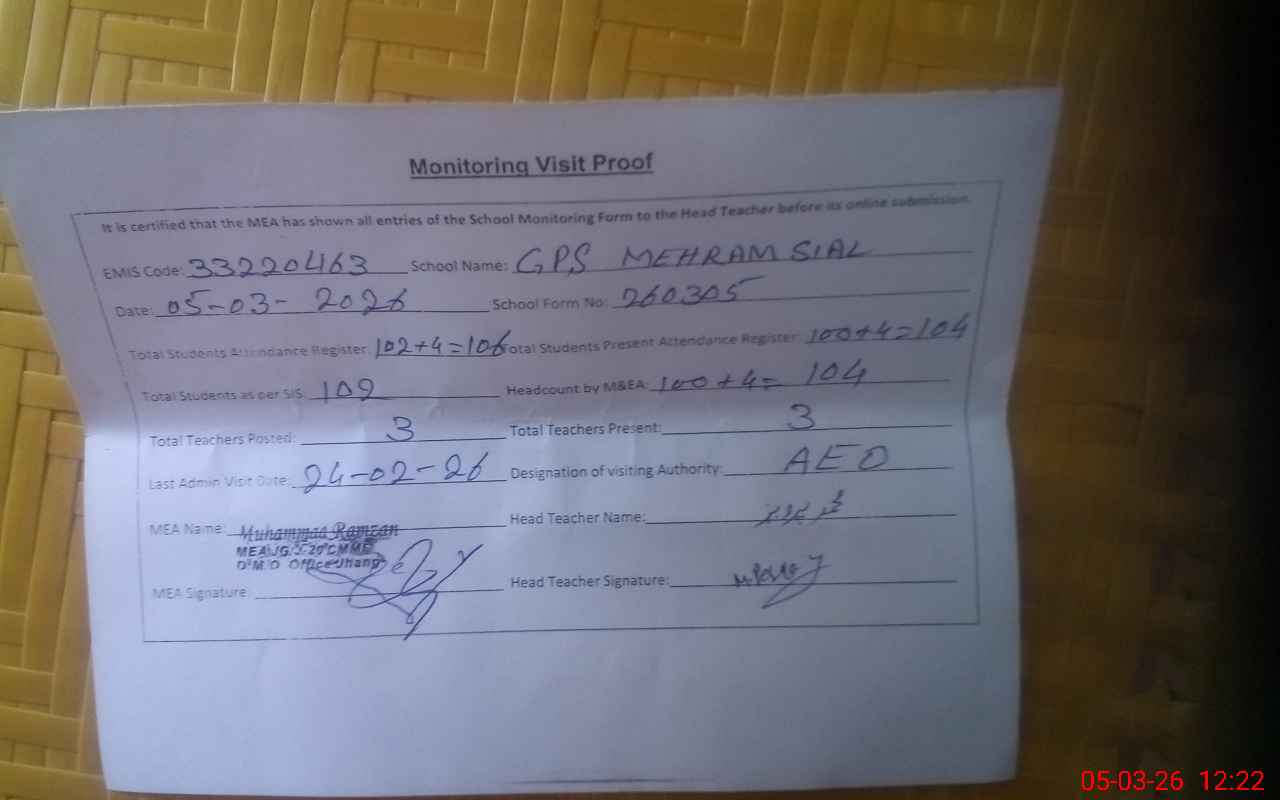 Monitoring Visit Proof
It is certified that the MEA has shown all entries of the School Monitoring Form to the Head Teacher before its online submission.
EMIS Code: 33220463 School Name: GPS MEHRAM SIAL
Date: 05-03-2026 School Form No: 260305
Total Students Attendance Register: 102+4=106 Total Students Present Attendance Register: 100+4=104
Total Students as per SIS: 109 Headcount by M&EA: 100+4= 104
Total Teachers Posted: 3 Total Teachers Present: 3
Last Admin Visit Date: 24-02-26 Designation of visiting Authority: AEO
MEA Name: Muhammad Ramzan Head Teacher Name:
D.M.O Office Jhang
MEA Signature: Head Teacher Signature:
05-03-26 12:22